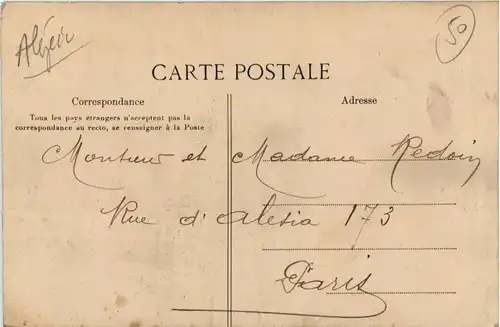 Algérie
50
CARTE POSTALE
Correspondance
Adresse
Tous les pays étrangers n'acceptent pas la
correspondance au recto, se renseigner à la Poste
Monsieur et Madame Redoin
Rue d'alesia 173
Paris